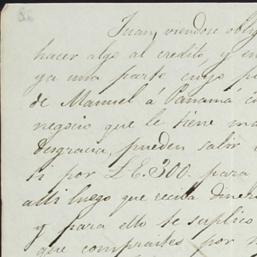 Juan, viendose oblig
hacer algo al credito, y en
ya una parte cuyo p
de Manuel á Panamá c
negocio que le tiene m
desgracia, pueden salir
ti por L.E. 300. para
alli luego que reciba dine
y para ello te suplico
que compraites por